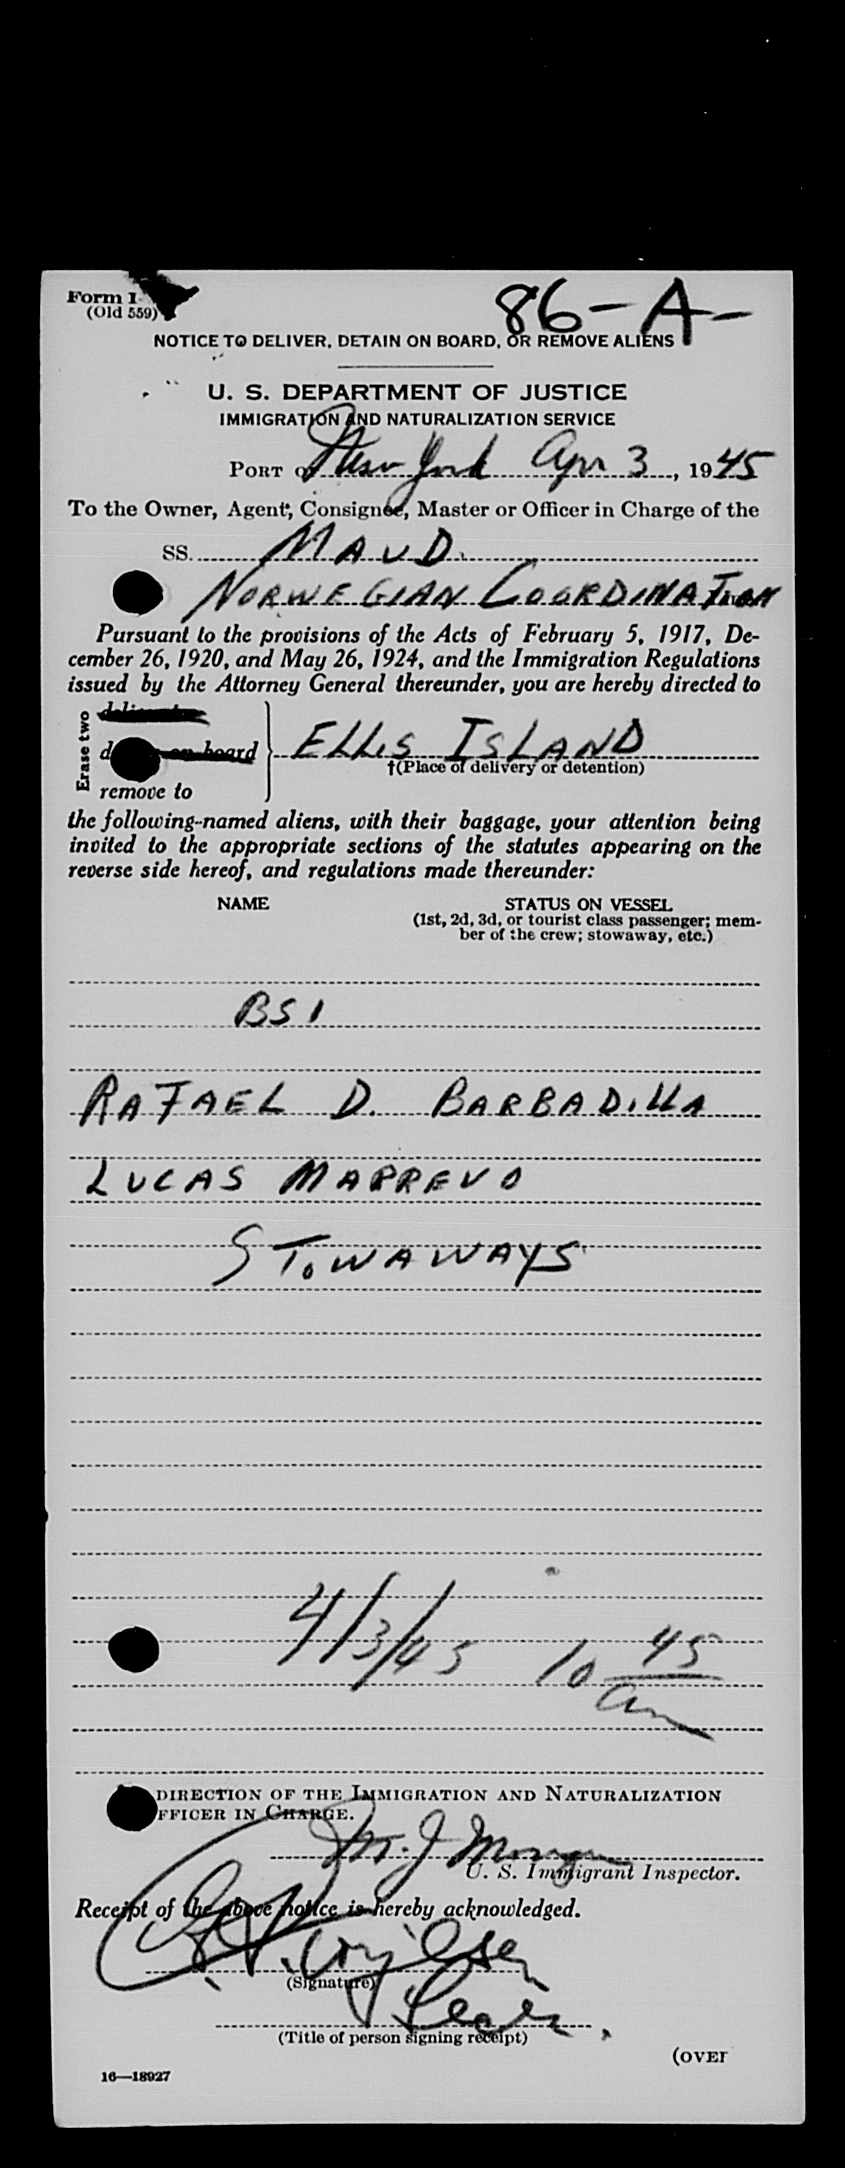 Form I-
(Old 559)
86-A-
NOTICE TO DELIVER, DETAIN ON BOARD, OR REMOVE ALIENS
U. S. DEPARTMENT OF JUSTICE
IMMIGRATION AND NATURALIZATION SERVICE
PORT of New York Apr 3, 1945
To the Owner, Agent, Consignee, Master or Officer in Charge of the
SS. MAUD.
NORWEGIAN COORDINATION
Pursuant to the provisions of the Acts of February 5, 1917, De-
cember 26, 1920, and May 26, 1924, and the Immigration Regulations
issued by the Attorney General thereunder, you are hereby directed to
Erase two
on board ELLIS ISLAND
†(Place of delivery or detention)
remove to
the following-named aliens, with their baggage, your attention being
invited to the appropriate sections of the statutes appearing on the
reverse side hereof, and regulations made thereunder:
NAME STATUS ON VESSEL
(1st, 2d, 3d, or tourist class passenger; mem-
ber of the crew; stowaway, etc.)
BSI
RAFAEL D. BARBADILLA
LUCAS MARREVO
STOWAWAYS
4/3/45 10 45
am
DIRECTION OF THE IMMIGRATION AND NATURALIZATION
FFICER IN CHARGE.
M. J. Morgan
U. S. Immigrant Inspector.
Receipt of the above notice is hereby acknowledged.
(Signature)
(Title of person signing receipt)
(OVER
16—18927